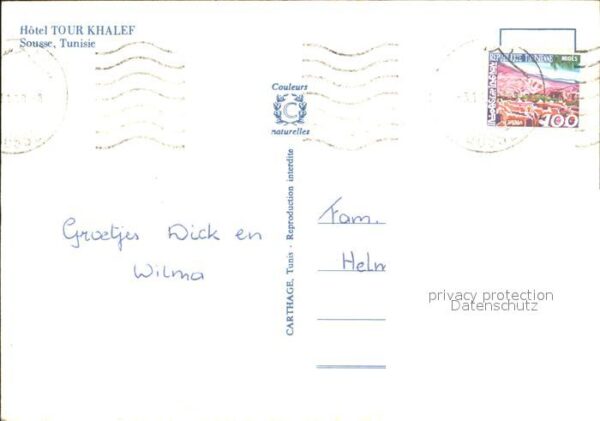 Hôtel TOUR KHALEF
Sousse, Tunisie
Couleurs
C
naturelles
CARTHAGE, Tunis - Reproduction interdite
100
Groetjes Dick en
Wilma
Fam.
Helm
privacy protection
Datenschutz